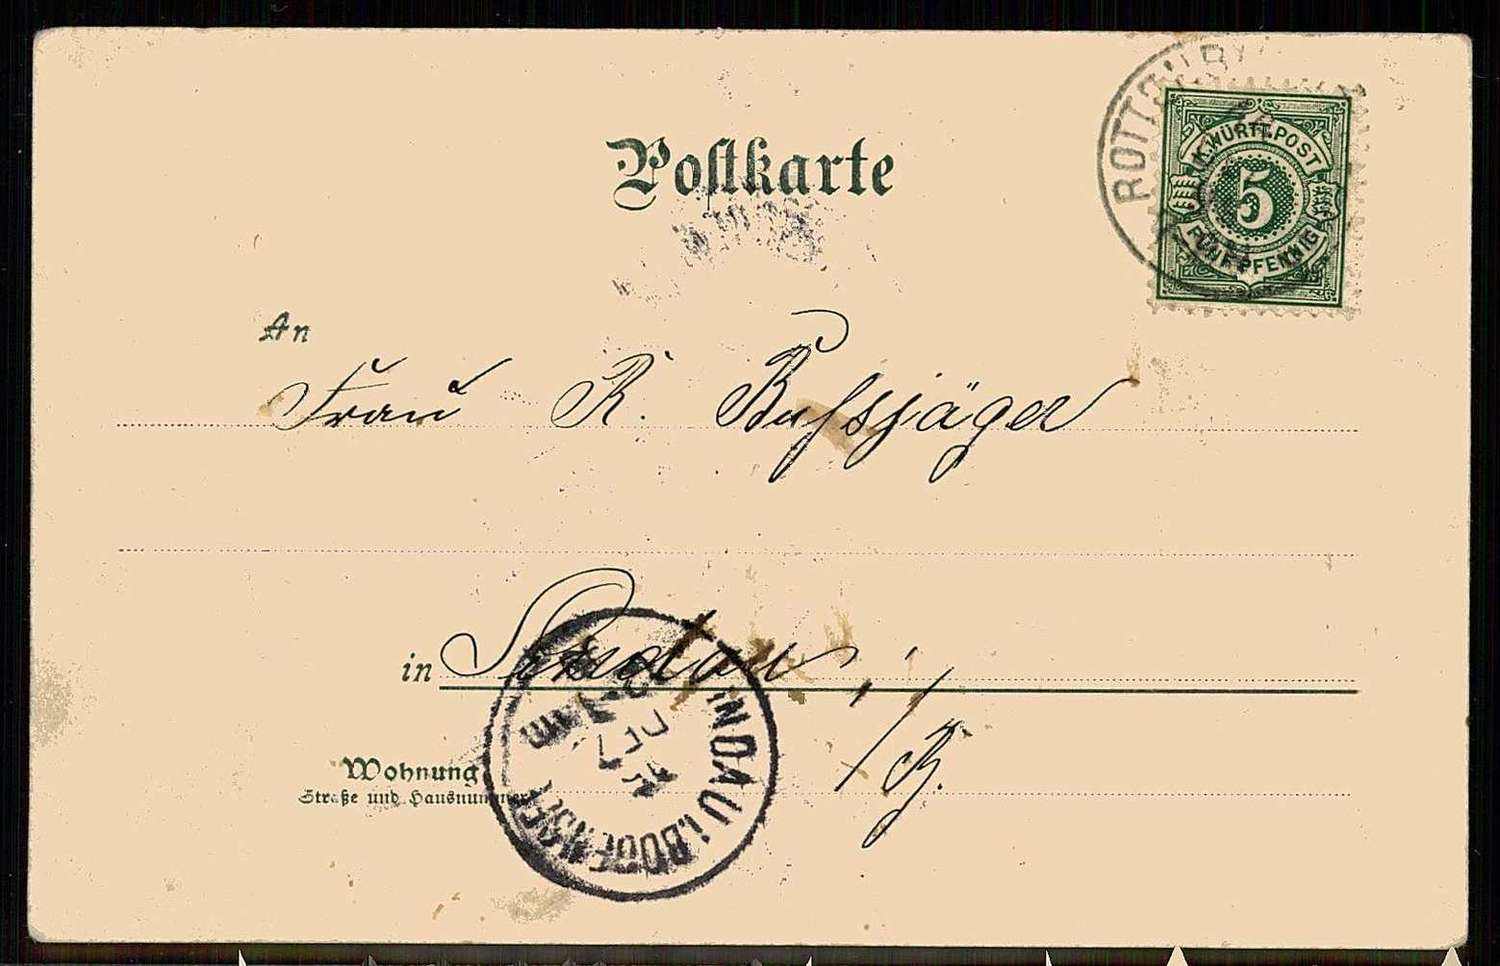 Postkarte
K. WÜRTT. POST
5
FÜNF PFENNIG
An
Frau R. Bufsjäger
in Lindau i/B.
LINDAU i. BODENSEE
Wohnung
Straße und Hausnummer